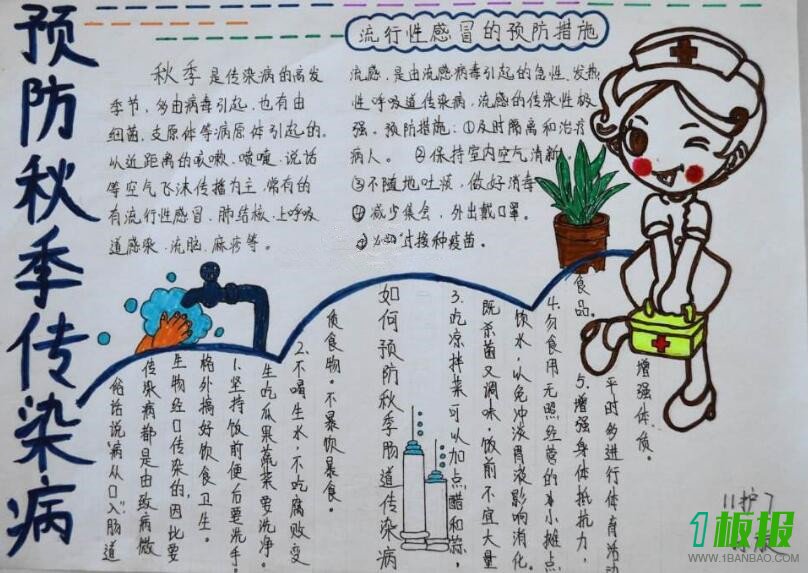 预防秋季传染病
秋季是传染病的高发
季节，多由病毒引起，也有由
细菌、支原体等病原体引起的。
以近距离的咳嗽、喷嚏、说话
等空气飞沫传播为主，常有的
有流行性感冒、肺结核、上呼吸
道感染、流脑、麻疹等。
流行性感冒的预防措施
流感，是由流感病毒引起的急性、发热
性呼吸道传染病，流感的传染性极
强。预防措施：①及时隔离和治疗
病人。②保持室内空气清新。
③不随地吐痰，做好消毒
④减少集会，外出戴口罩。
对接种疫苗。
如何预防秋季肠道传染病
俗话说“病从口入”肠道
传染病都是由致病微
生物经口传染的，因此要
格外搞好饮食卫生。
1.坚持饭前便后要洗手。
生吃瓜果蔬菜要洗净。
2.不喝生水，不吃腐败变
质食物。不暴饮暴食。
3.吃凉拌菜可以加点醋和蒜，
既杀菌又调味，饭前不宜大量
饮水，以免冲淡胃液影响消化。
4.勿食用无照经营的小摊点
食品。
5.增强身体抵抗力，
平时多进行体育活动
增强体质。
11护7
1板报
WWW.1BANBAO.COM